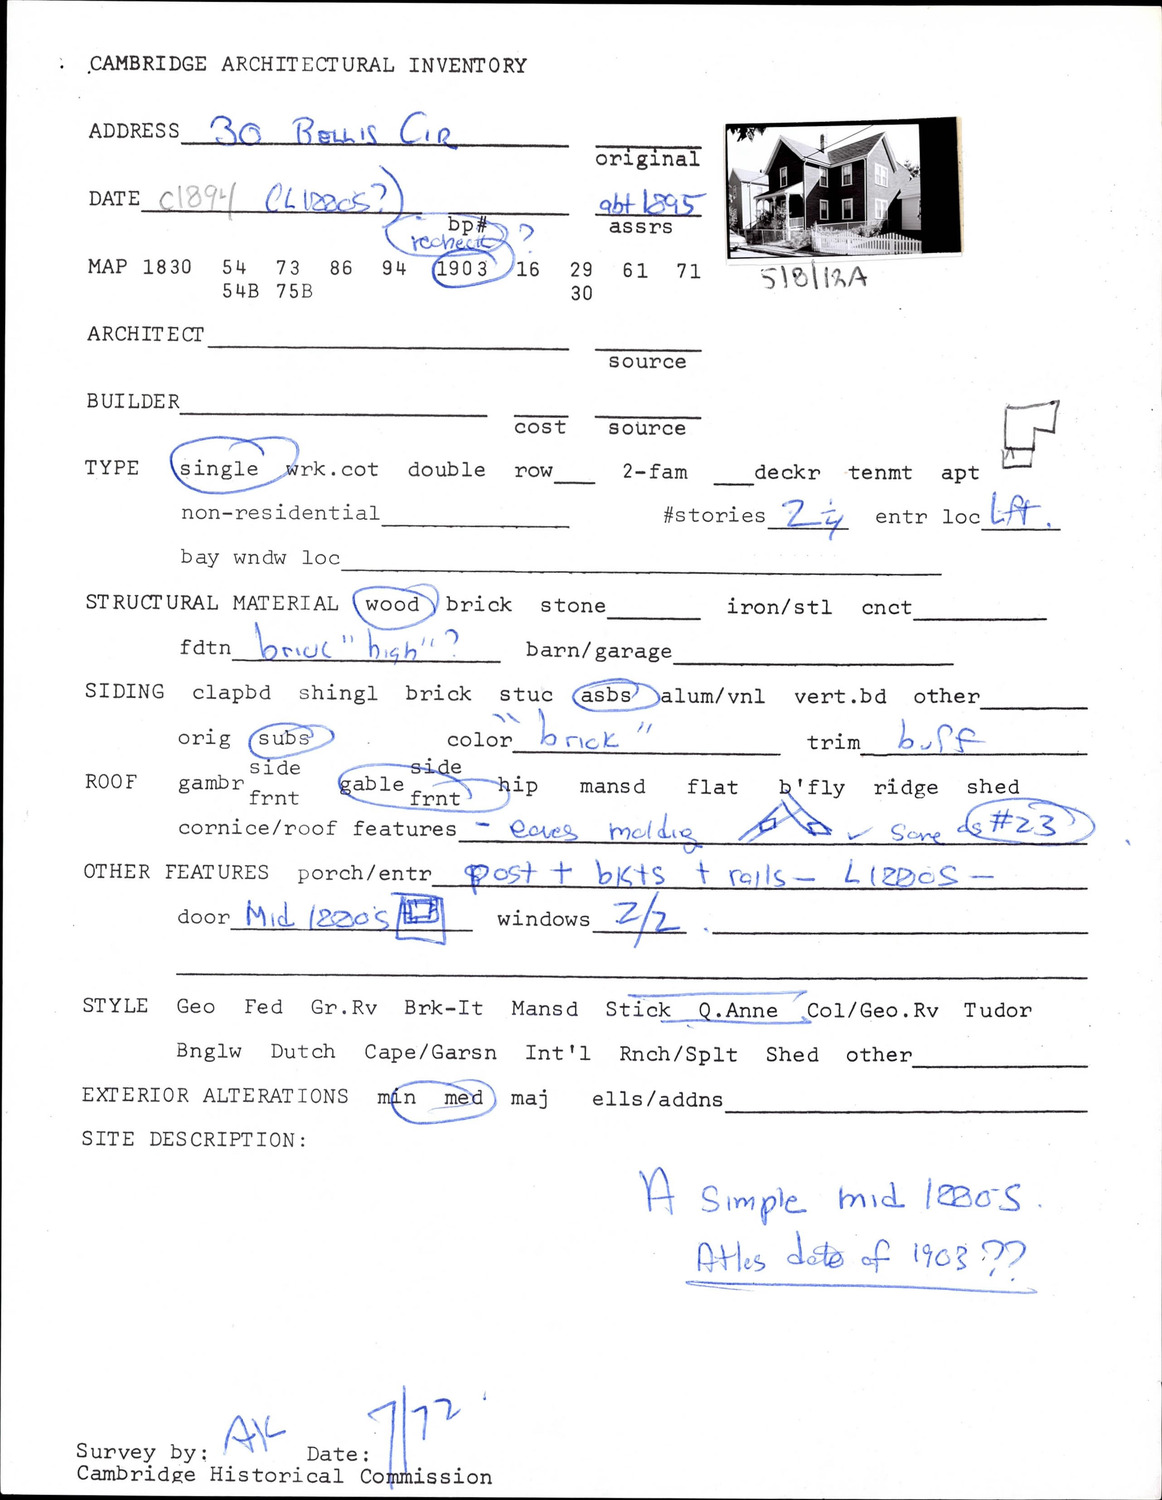 CAMBRIDGE ARCHITECTURAL INVENTORY
ADDRESS 30 BELLIS CIR
original
DATE c1894 (L1880s?) abt 1895
bp# assrs
recheck ?
MAP 1830 54 73 86 94 1903 16 29 61 71
54B 75B 30
5/8/12A
ARCHITECT
source
BUILDER
cost source
TYPE single wrk.cot double row 2-fam deckr tenmt apt
non-residential #stories 2 1/4 entr loc Lft.
bay wndw loc
STRUCTURAL MATERIAL wood brick stone iron/stl cnct
fdtn brick "high"? barn/garage
SIDING clapbd shingl brick stuc asbs alum/vnl vert.bd other
orig subs color "brick" trim buff
ROOF gambr side frnt gable side frnt hip mansd flat b'fly ridge shed
cornice/roof features - eaves molding ✓ same as #23
OTHER FEATURES porch/entr post + bkts + rails - L1880s -
door Mid 1880's windows 2/2.
STYLE Geo Fed Gr.Rv Brk-It Mansd Stick Q.Anne Col/Geo.Rv Tudor
Bnglw Dutch Cape/Garsn Int'l Rnch/Splt Shed other
EXTERIOR ALTERATIONS min med maj ells/addns
SITE DESCRIPTION:
A simple mid 1880s.
Atlas date of 1903 ??
Survey by: AK Date: 7/72
Cambridge Historical Commission